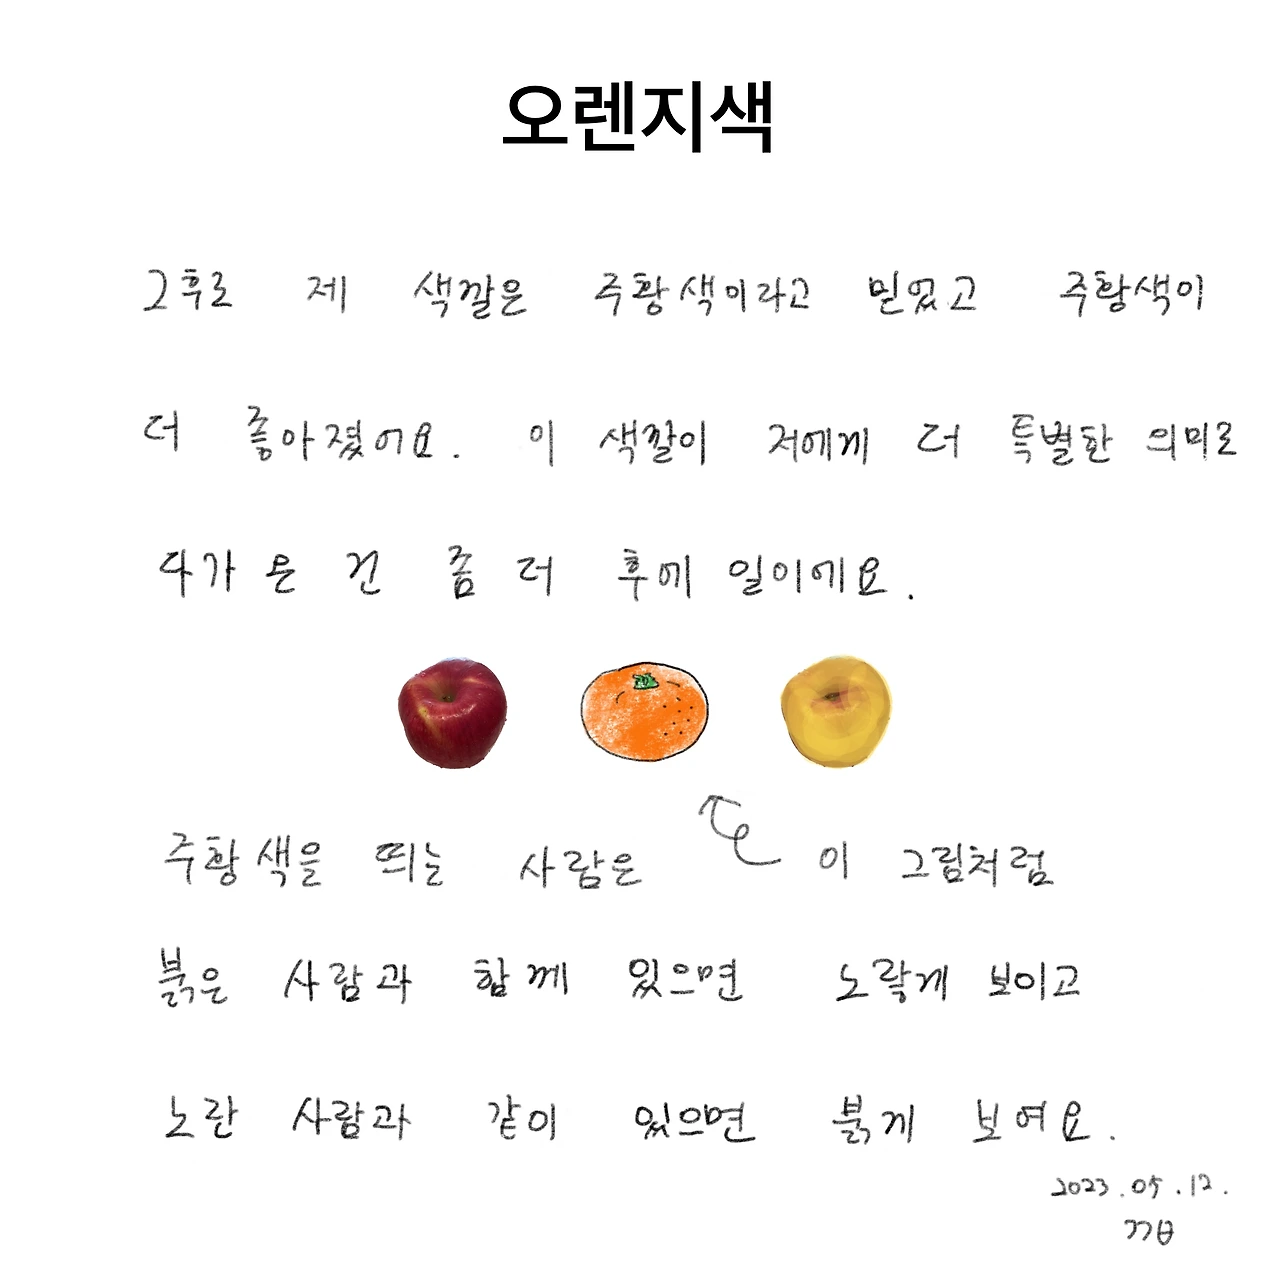 오렌지색
그후로 제 색깔은 주황색이라고 믿었고 주황색이
더 좋아졌어요. 이 색깔이 저에게 더 특별한 의미로
다가온 건 좀 더 후에 일이에요.
주황색을 띄는 사람은 이 그림처럼
붉은 사람과 함께 있으면 노랗게 보이고
노란 사람과 같이 있으면 붉게 보여요.
2023.05.12.